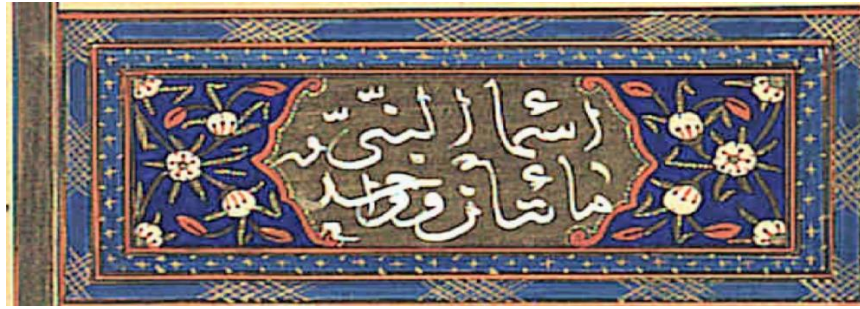 اسما النبي
مائتان وواحد